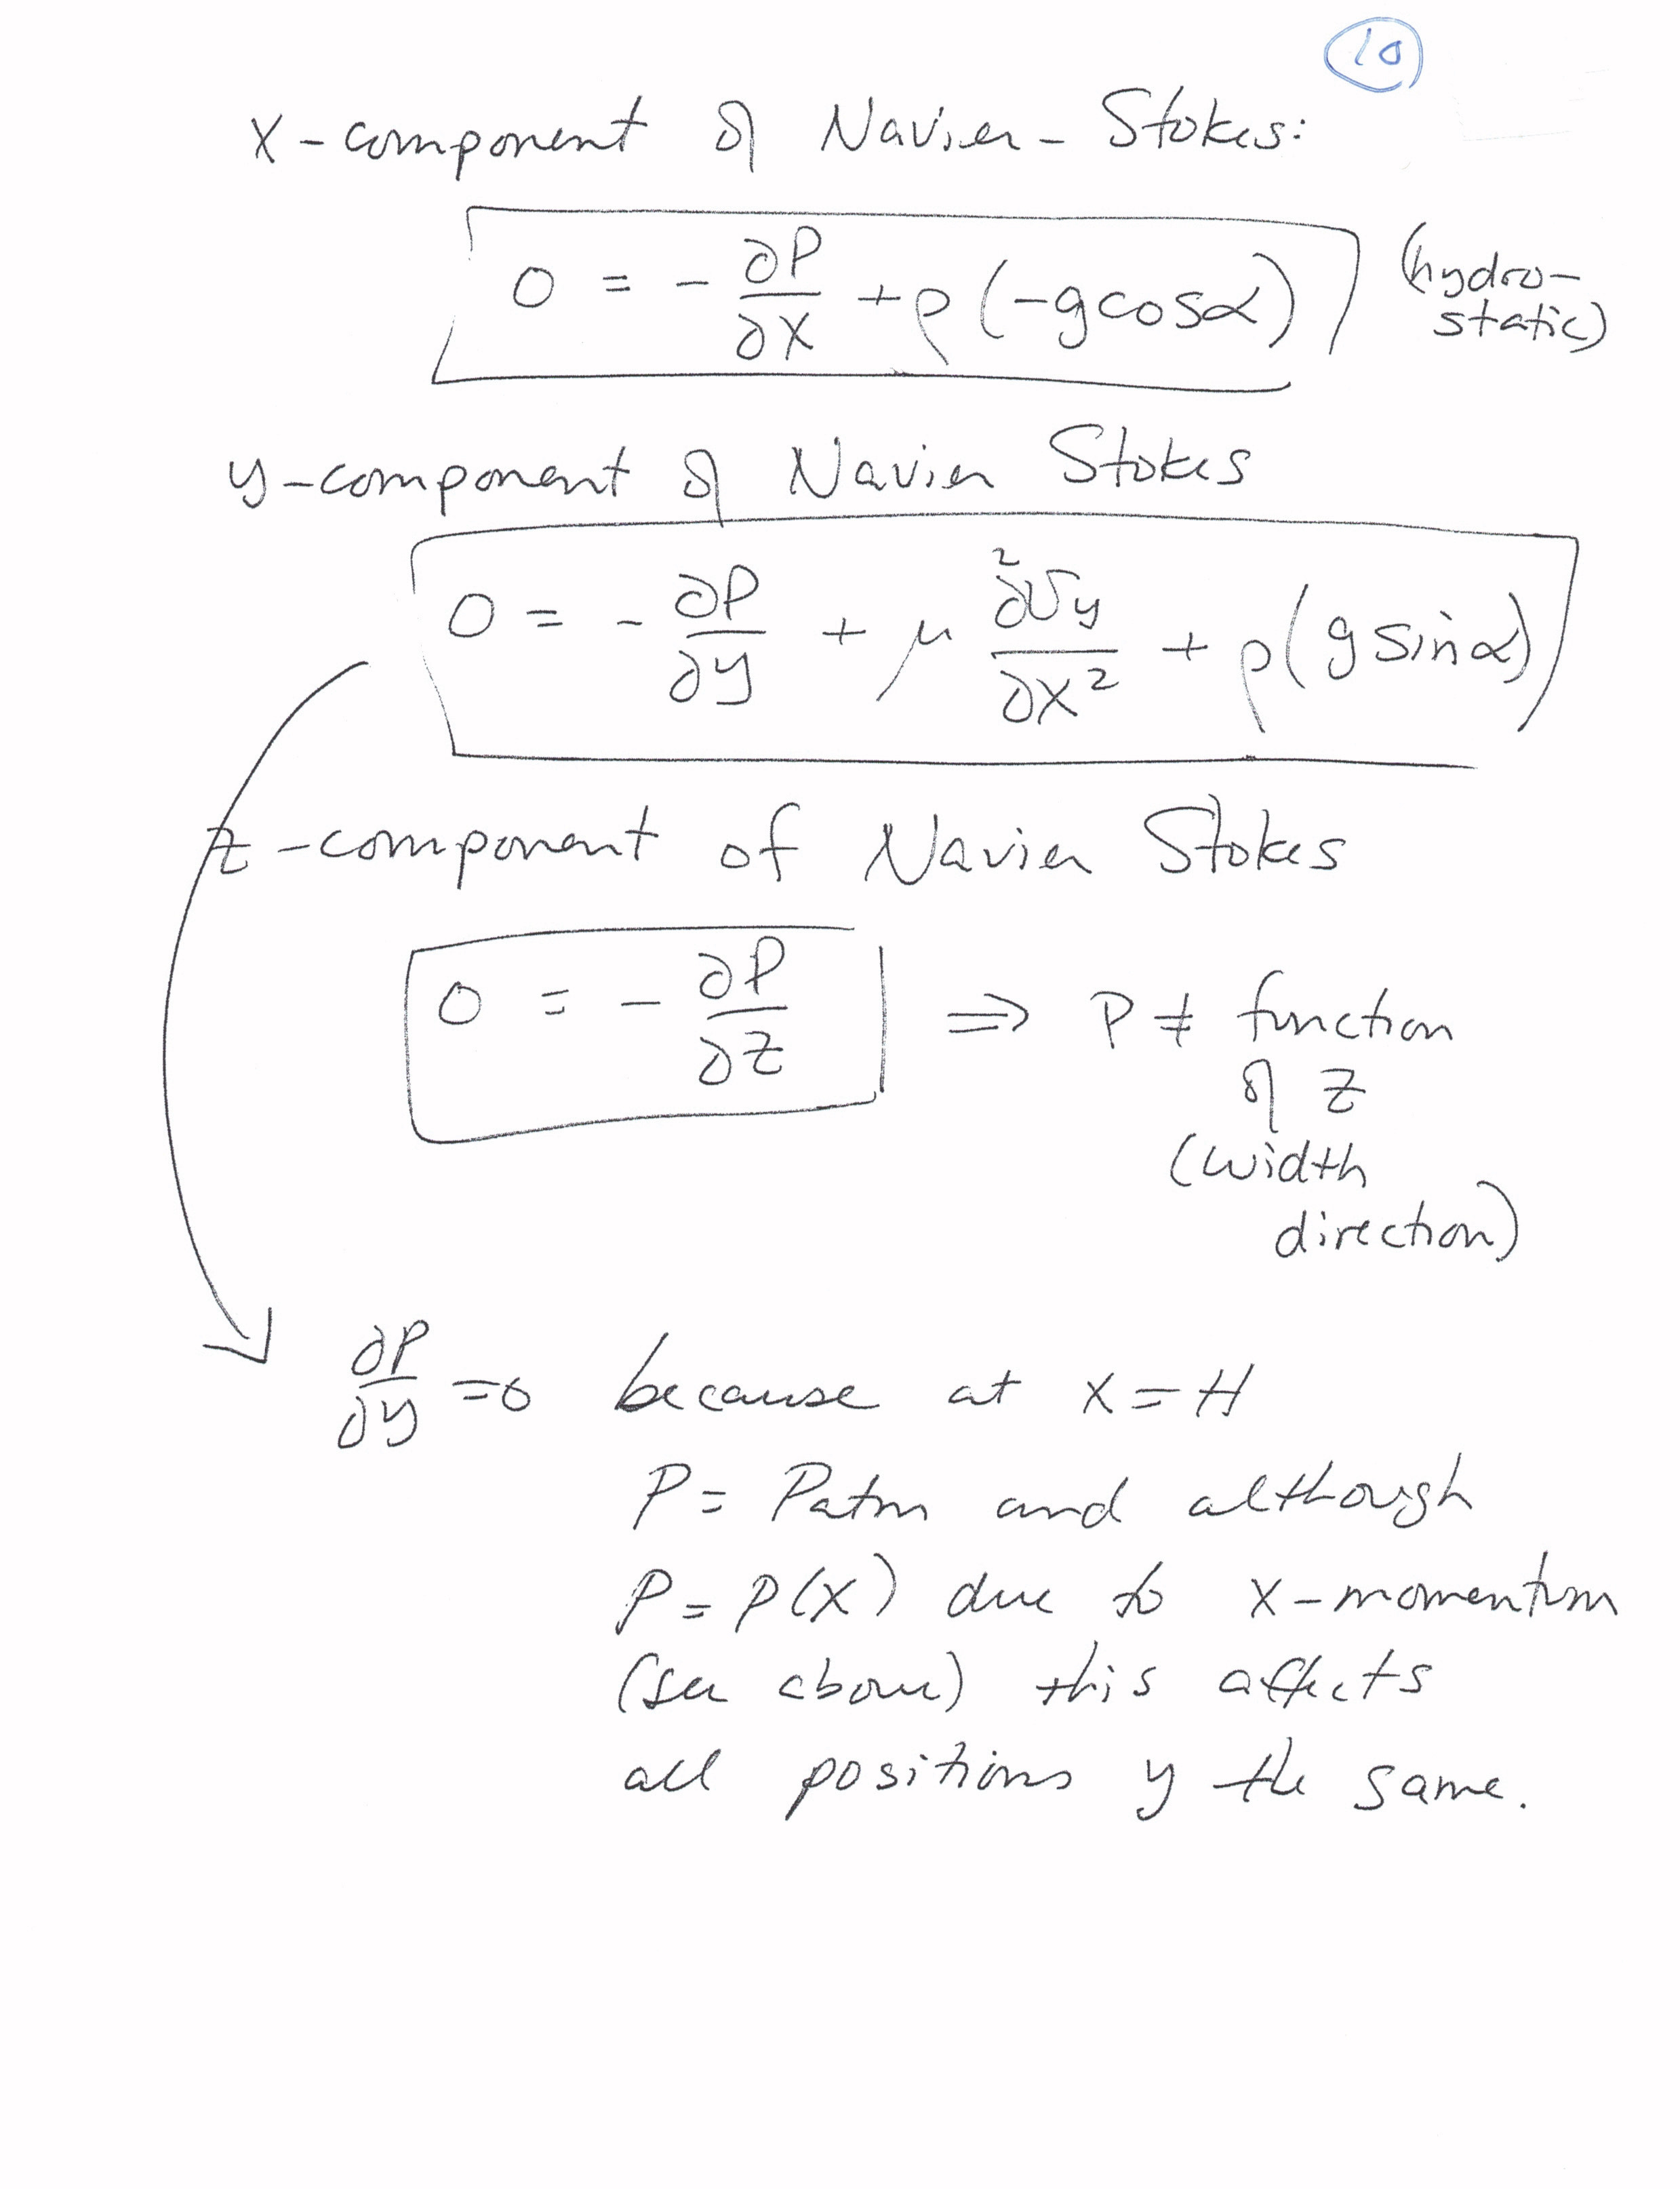 10
x-component of Navier-Stokes:
0 = - ∂P/∂x + ρ(-g cosα) (hydro-
static)
y-component of Navier Stokes
0 = - ∂P/∂y + μ ∂²v_y/∂x² + ρ(g sinα)
z-component of Navier Stokes
0 = - ∂P/∂z ⇒ P ≠ function
of z
(width
direction)
∂P/∂y = 0 because at x = H
P = Patm and although
P = P(x) due to x-momentum
(see above) this affects
all positions y the same.